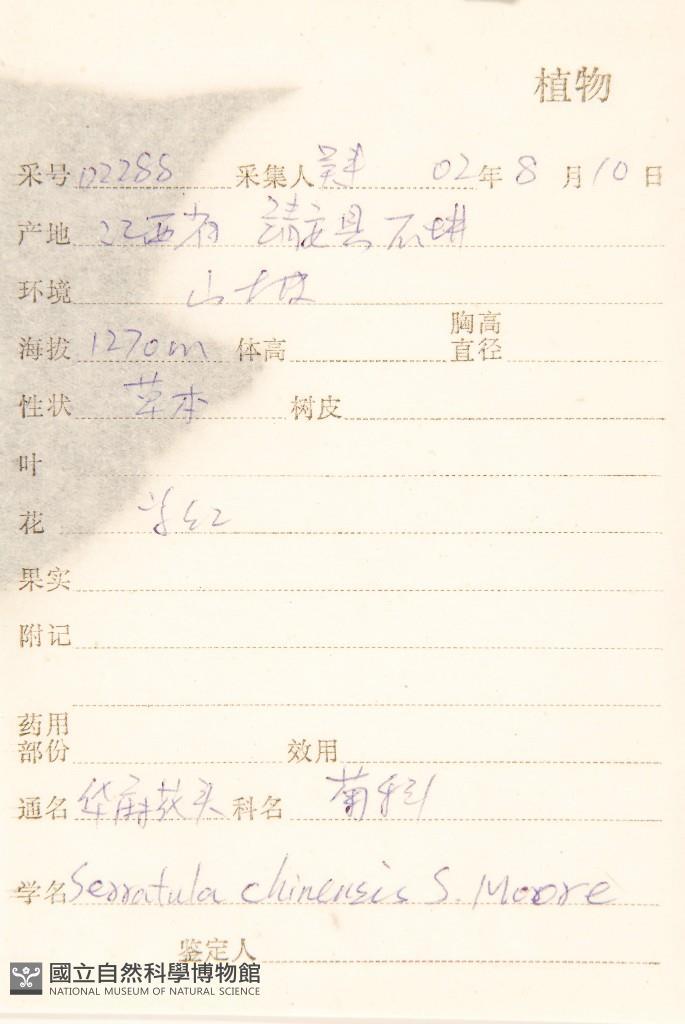 植物
采号 02288 采集人 02年8月10日
产地 江西省 靖安县石垇
环境 山坡
海拔 1270m 体高 胸高直径
性状 草本 树皮
叶
花 紫红
果实
附记
药用部份 效用
通名 华麻花头 科名 菊科
学名 Serratula chinensis S. Moore
鉴定人
國立自然科學博物館
NATIONAL MUSEUM OF NATURAL SCIENCE